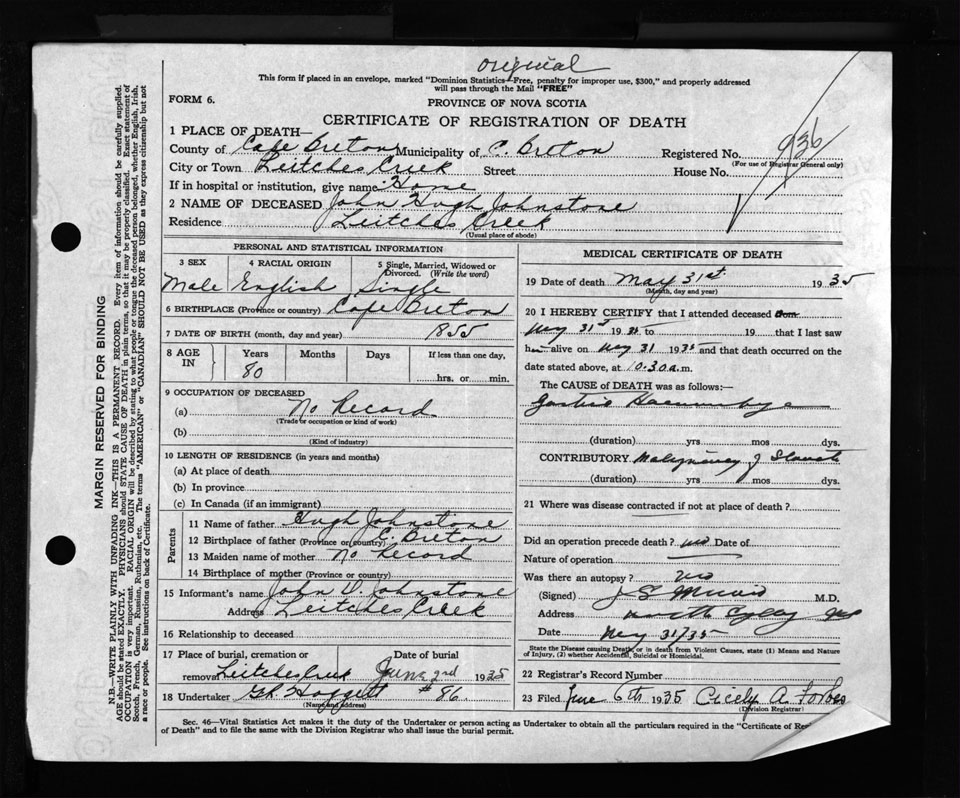 original
This form if placed in an envelope, marked "Dominion Statistics—Free, penalty for improper use, $300," and properly addressed
will pass through the Mail "FREE"
FORM 6.
PROVINCE OF NOVA SCOTIA
CERTIFICATE OF REGISTRATION OF DEATH
1 PLACE OF DEATH—
County of Cape Breton Municipality of C. Breton Registered No. 936
(For use of Registrar General only)
City or Town Leitches Creek Street House No.
If in hospital or institution, give name Home
2 NAME OF DECEASED John Hugh Johnstone
Residence Leitches Creek
(Usual place of abode)
PERSONAL AND STATISTICAL INFORMATION
3 SEX 4 RACIAL ORIGIN 5 Single, Married, Widowed or Divorced. (Write the word)
Male English Single
6 BIRTHPLACE (Province or country) Cape Breton
7 DATE OF BIRTH (month, day and year) 1855
8 AGE IN Years Months Days If less than one day,
80 hrs. or min.
9 OCCUPATION OF DECEASED
(a) No Record
(Trade or occupation or kind of work)
(b)
(Kind of industry)
10 LENGTH OF RESIDENCE (in years and months)
(a) At place of death
(b) In province
(c) In Canada (if an immigrant)
Parents
11 Name of father Hugh Johnstone
12 Birthplace of father (Province or country) C. Breton
13 Maiden name of mother No Record
14 Birthplace of mother (Province or country)
15 Informant's name John D. Johnstone
Address Leitches Creek
16 Relationship to deceased
17 Place of burial, cremation or removal Leitches Creek Date of burial June 2nd 1935
18 Undertaker #86
(Name and address)
MEDICAL CERTIFICATE OF DEATH
19 Date of death May 31st 1935
(Month, day and year)
20 I HEREBY CERTIFY that I attended deceased from
May 31st 1935 to 19 that I last saw
him alive on May 31 1935 and that death occurred on the
date stated above, at 10.30 a.m.
The CAUSE of DEATH was as follows:—
Gastric Haemorrhage
(duration) yrs mos dys.
CONTRIBUTORY Malignancy of Stomach
(duration) yrs mos dys.
21 Where was disease contracted if not at place of death?
Did an operation precede death? no Date of
Nature of operation
Was there an autopsy? no
(Signed) M.D.
Address North Sydney
Date May 31/35
State the Disease causing Death, or in death from Violent Causes, state (1) Means and Nature of Injury, (2) whether Accidental, Suicidal or Homicidal.
22 Registrar's Record Number
23 Filed June 6th 1935 Cicely A. Forbes
(Division Registrar)
Sec. 46—Vital Statistics Act makes it the duty of the Undertaker or person acting as Undertaker to obtain all the particulars required in the "Certificate of
of Death" and to file the same with the Division Registrar who shall issue the burial permit.
MARGIN RESERVED FOR BINDING
N.B.—WRITE PLAINLY WITH UNFADING INK—THIS IS A PERMANENT RECORD. Every item of information should be carefully supplied.
AGE should be stated EXACTLY. PHYSICIANS should STATE CAUSE OF DEATH in plain terms, so that it may be properly classified. Exact statement of
OCCUPATION is very important. RACIAL ORIGIN will be described by stating to what people or tongue the deceased person belonged, whether English, Irish,
Scotch, French, German, Russian, Ruthenian, etc. The terms "AMERICAN" or "CANADIAN" SHOULD NOT BE USED as they express citizenship but not
a race or people. See instructions on back of Certificate.